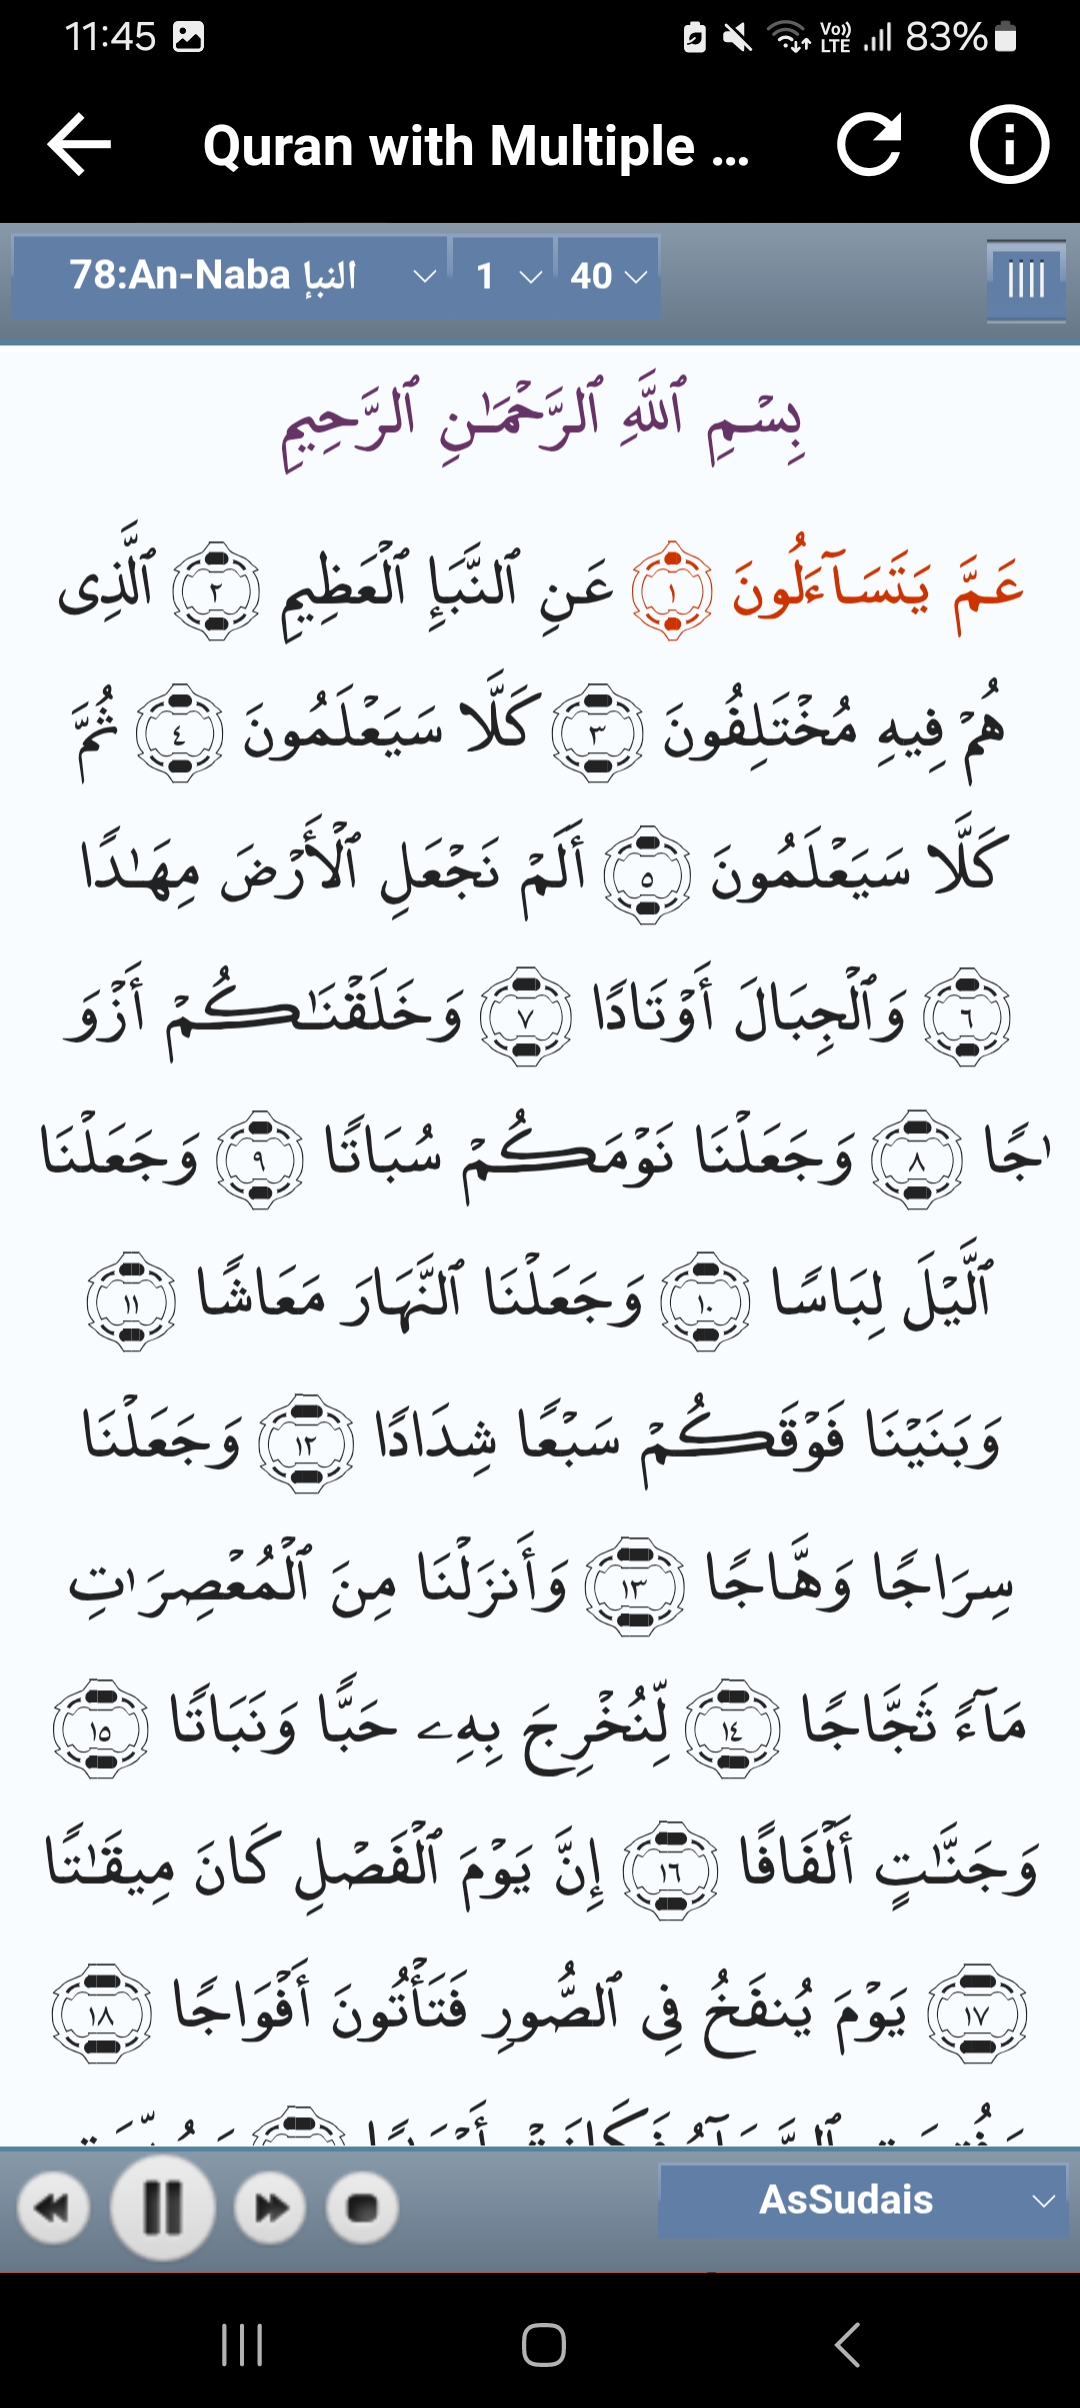 11:45 Vo)) LTE 83%
Quran with Multiple ...
78:An-Naba النبإ 1 40
بِسْمِ ٱللَّهِ ٱلرَّحْمَـٰنِ ٱلرَّحِيمِ
عَمَّ يَتَسَآءَلُونَ ١ عَنِ ٱلنَّبَإِ ٱلْعَظِيمِ ٢ ٱلَّذِى
هُمْ فِيهِ مُخْتَلِفُونَ ٣ كَلَّا سَيَعْلَمُونَ ٤ ثُمَّ
كَلَّا سَيَعْلَمُونَ ٥ أَلَمْ نَجْعَلِ ٱلْأَرْضَ مِهَـٰدًا
٦ وَٱلْجِبَالَ أَوْتَادًا ٧ وَخَلَقْنَـٰكُمْ أَزْوَ
ٰجًا ٨ وَجَعَلْنَا نَوْمَكُمْ سُبَاتًا ٩ وَجَعَلْنَا
ٱلَّيْلَ لِبَاسًا ١٠ وَجَعَلْنَا ٱلنَّهَارَ مَعَاشًا ١١
وَبَنَيْنَا فَوْقَكُمْ سَبْعًا شِدَادًا ١٢ وَجَعَلْنَا
سِرَاجًا وَهَّاجًا ١٣ وَأَنزَلْنَا مِنَ ٱلْمُعْصِرَٰتِ
مَآءً ثَجَّاجًا ١٤ لِّنُخْرِجَ بِهِۦ حَبًّا وَنَبَاتًا ١٥
وَجَنَّـٰتٍ أَلْفَافًا ١٦ إِنَّ يَوْمَ ٱلْفَصْلِ كَانَ مِيقَـٰتًا
١٧ يَوْمَ يُنفَخُ فِى ٱلصُّورِ فَتَأْتُونَ أَفْوَاجًا ١٨
AsSudais